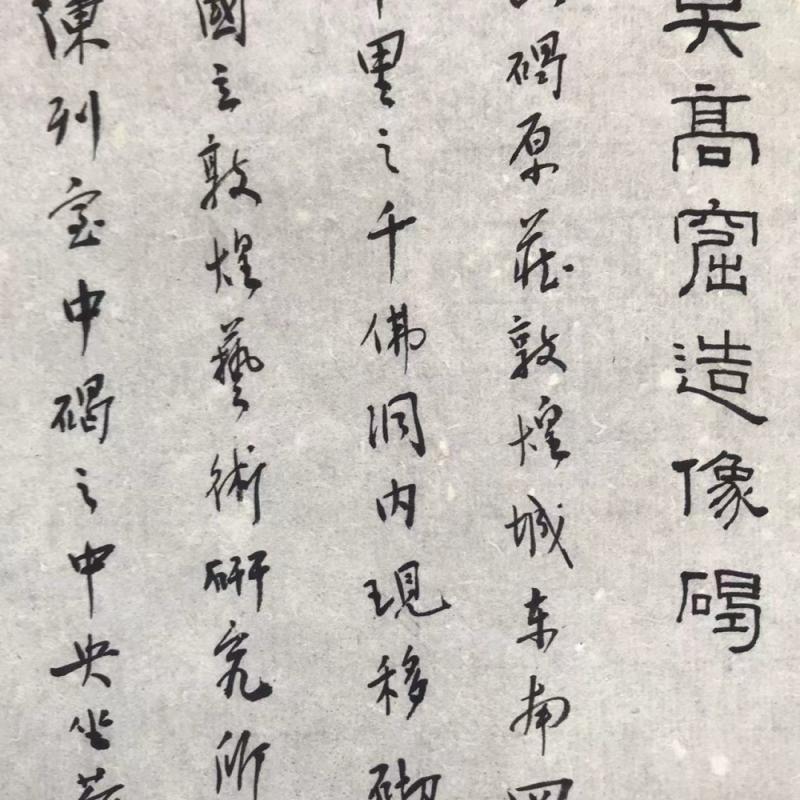 莫高窟造像碣
碣原在敦煌城东南四
里之千佛洞内現移砌
國立敦煌藝術研究所
陳列室中碣之中央坐